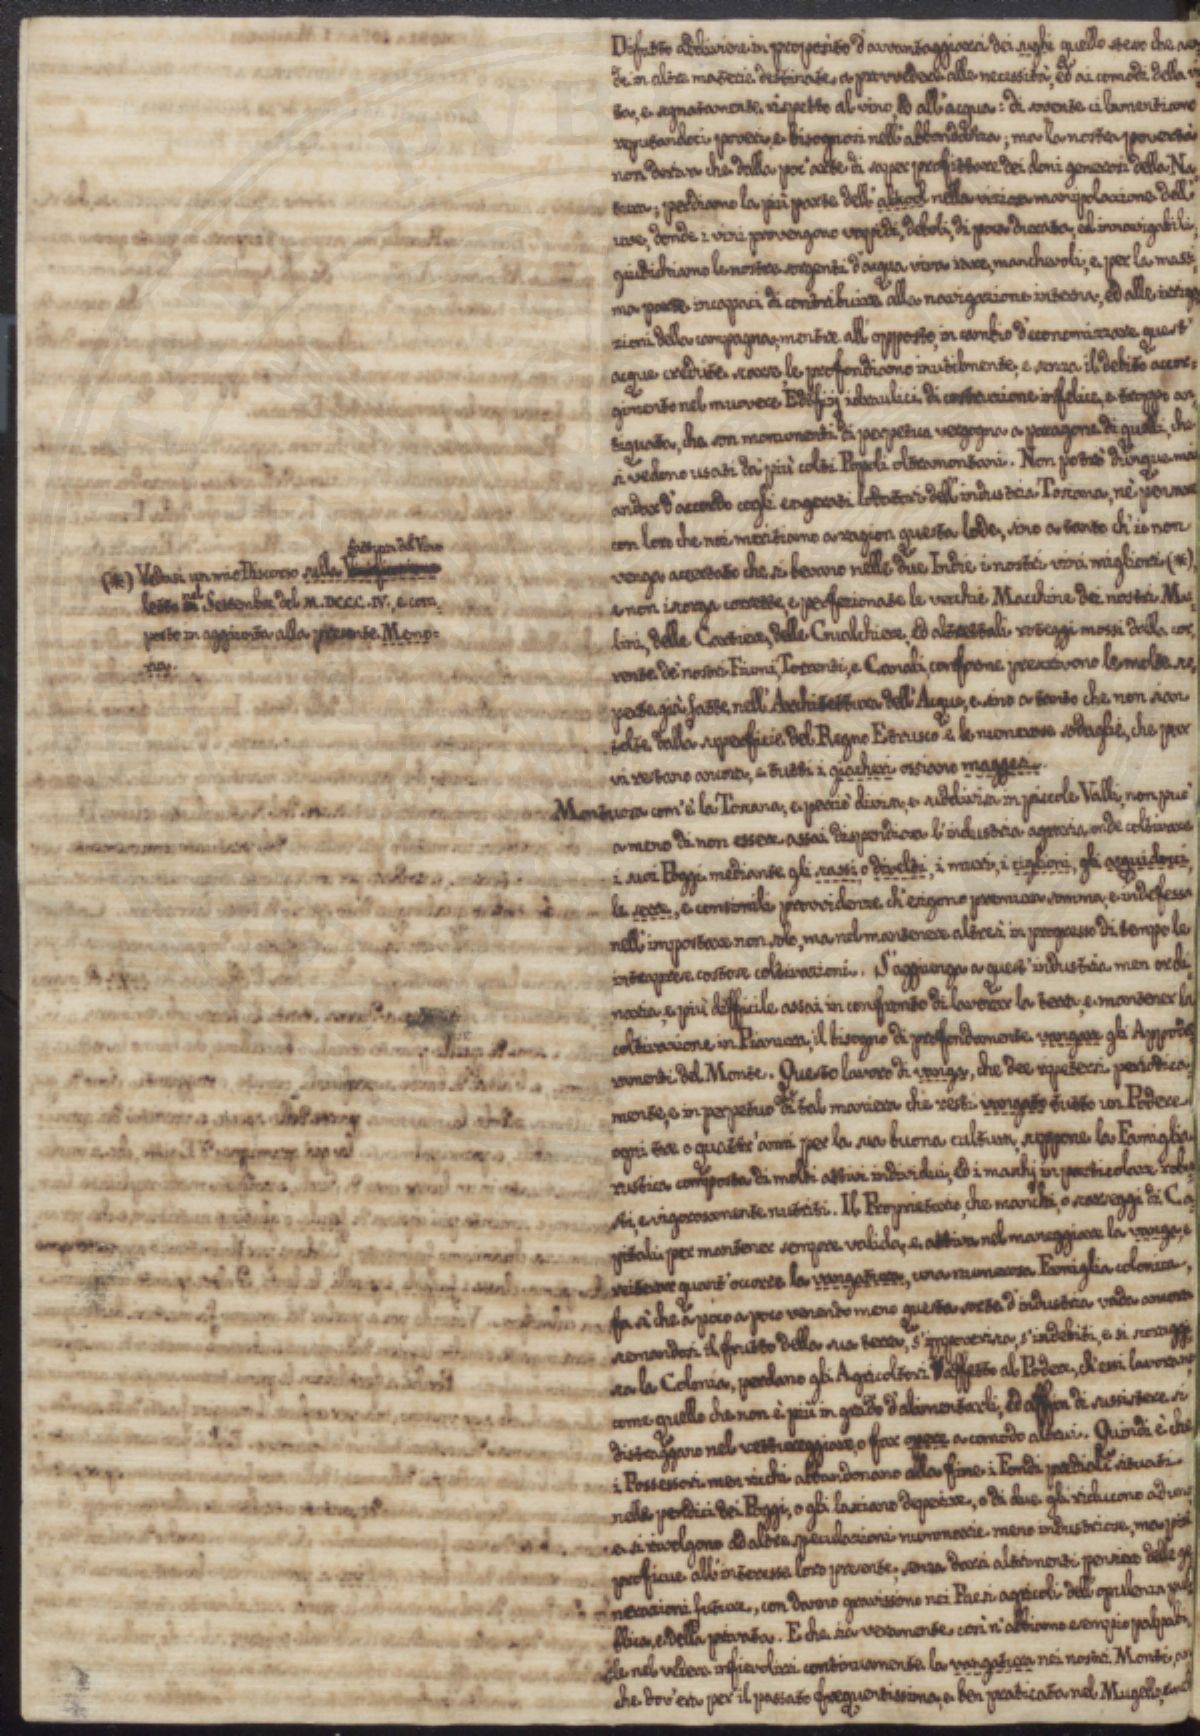 Difatto addiviene in proposito d'avvantaggiarci dei sughi quello stesso che
de in altre materie destinate a provvedere alle necessità, ed ai comodi della vi
ta, e segnatamente rispetto al vino, ed all'acqua: di sovente ci lamentiamo
reputandoci poveri, e bisognosi nell'abbondanza; ma la nostra povertà
non deriva che dalla poc'arte di saper profittare dei doni generosi della Na
tura; perdiamo la più parte dell'alkool nella viziosa manipolazione dell'
uve, donde i vini provengono vapidi, deboli, di poca durata, ed innavigabili;
giudichiamo le nostre sorgenti d'acqua viva rare, manchevoli, e per la massi
ma parte incapaci di contribuire alla navigazione interna, ed alle irriga
zioni della campagna, mentre all'opposto, in cambio d'economizzare quest'
acque credute scarse, le profondiamo inutilmente, e senza il debito accor-
gimento nel muovere Edifizj idraulici di costruzione infelice, e troppo an
tiquata, che son monumenti di perpetua vergogna a paragone di quelli, che
si vedono usati da' più colti Popoli oltramontani. Non potrò dunque mai
andar d'accordo cogli esagerati lodatori dell'industria Toscana, nè pensare
con loro che noi meritiamo a ragion questa lode, sino a tanto ch'io non
venga accertato che si bevano nelle due Indie i nostri vini migliori (*),
e non iscorga corrette, e perfezionate le vecchie Macchine dei nostri Mu
lini, delle Cartiere, delle Gualchiere, ed altrettali roteggi mossi dalla cor
rente de' nostri Fiumi, Torrenti, e Canali, conforme prescrivono le molte sco
perte già fatte nell'Architettura dell'Acque, e sino a tanto che non sian
tolte dalla superficie del Regno Etrusco e le numerose sodaglie, che pur
vi restano ancora, e tutti i giacheri ossiano maggesi.
(*) Vedasi un mio Discorso sulla fattura del Vino
letto nel Settembre del M.DCCC.IV., e com,
posto in aggiunta alla presente Memo=
ria.
Montuosa com'è la Toscana, e perciò divisa, e suddivisa in piccole Valli, non può
a meno di non essere assai dispendiosa l'industria agraria, onde coltivare
i suoi Poggi mediante gli scassi, o divelti, i muri, i ciglioni, gli acquidocci,
le serre, e consimili provvidenze ch'esigono premura somma, e indefessa
nell'impostare non solo, ma nel mantenere altresì in progresso di tempo le
intraprese costose coltivazioni. S'aggiunga a quest'industria men ordi
naria, e più difficile assai in confronto di lavorar la terra, e mantener la
coltivazione in Pianura, il bisogno di profondamente vangare gli Appezza
menti del Monte. Questo lavoro di vanga, che dee ripetersi periodica
mente, e in perpetuo di tal maniera che resti vangato tutto un Podere
ogni tre o quattr'anni per la sua buona cultura, suppone la Famiglia
rustica composta di molti attivi individui, ed i maschj in particolare robu
sti, e vigorosamente nutriti. Il Proprietario, che manchi, o scarseggi di Ca
pitali per mantener sempre valida, e attiva nel maneggiare la vanga, e
reiterare quant'occorre la vangatura, una numerosa Famiglia colonica,
fa sì che a poco a poco venendo meno questa sorta d'industria vada ancora
scemandosi il frutto della sua terra, s'impoverisca, s'indebiti, e si scoraggi
sca la Colonia, perdano gli Agricoltori l'affetto al Podere, ch'essi lavorano
come quello che non è più in grado d'alimentarli, ed affin di sussistere si
distraggano nel vettureggiare, o far opere a comodo altrui. Quindi è che
i Possessori men ricchi abbandonano alla fine i Fondi prediali situati
nelle pendici dei Poggi, o gli lasciano deperire, o di due gli riducono ad uno,
e si rivolgono ad altre speculazioni nummarie meno industriose, ma più
proficue all'interesse loro presente, senza darsi altrimenti pensiero delle ge
nerazioni future, con danno gravissimo nei Paesi agricoli dell'opulenza pub
blica, e della privata. E che sia veramente così n'abbiamo esempio palpabi
le nel vedere infievolirsi continuamente la vangatura nei nostri Monti, an
che dov'era per il passato frequentissima, e ben praticata nel Mugello,